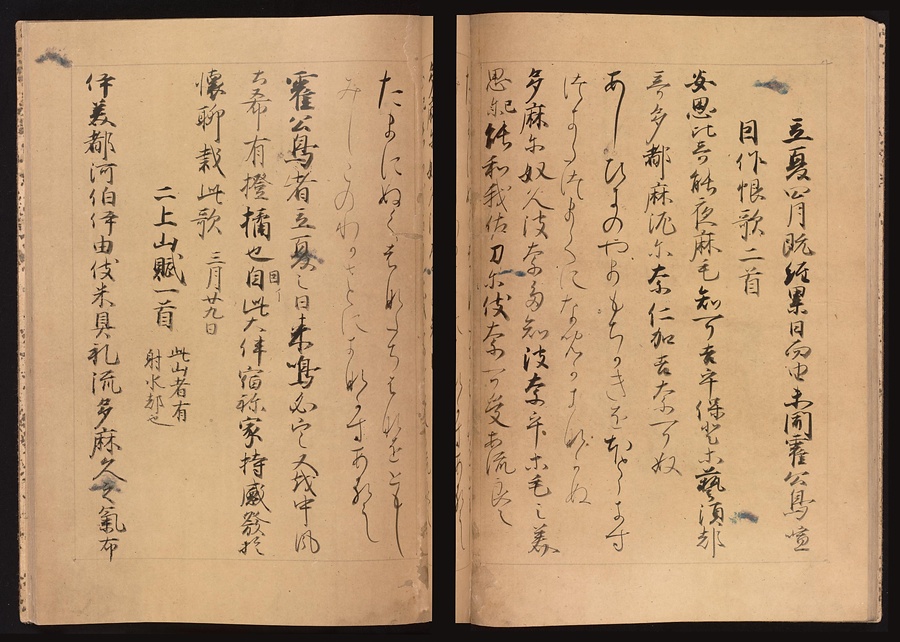 立夏四月既經累日而由未聞霍公鳥喧
因作恨歌二首
安思比奇能夜麻毛知可吉乎保登等藝須都
奇多都麻泥尓奈仁加吉奈可奴
あしひきのやまもちかきをほとゝきす
つきたつまてになにかきなかぬ
多麻尓奴久波奈多知波奈乎等毛之美
思己能和我佐刀尓伎奈可受安流良之
たまにぬくはなたちはなをともし
みしこのわかさとにきなかすあるらし
霍公鳥者立夏之日来鳴必定又越中風
土希有橙橘也因此大伴宿祢家持感發於
懐聊裁此歌 三月廿九日
二上山賦一首 此山者有
射水郡也
伊美都河伯伊由伎米具礼流多麻久之氣布